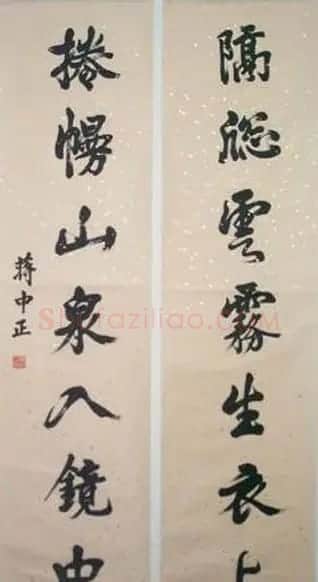 隔窓雲霧生衣上
捲幔山泉入鏡中
蒋中正
shufaziliao.com